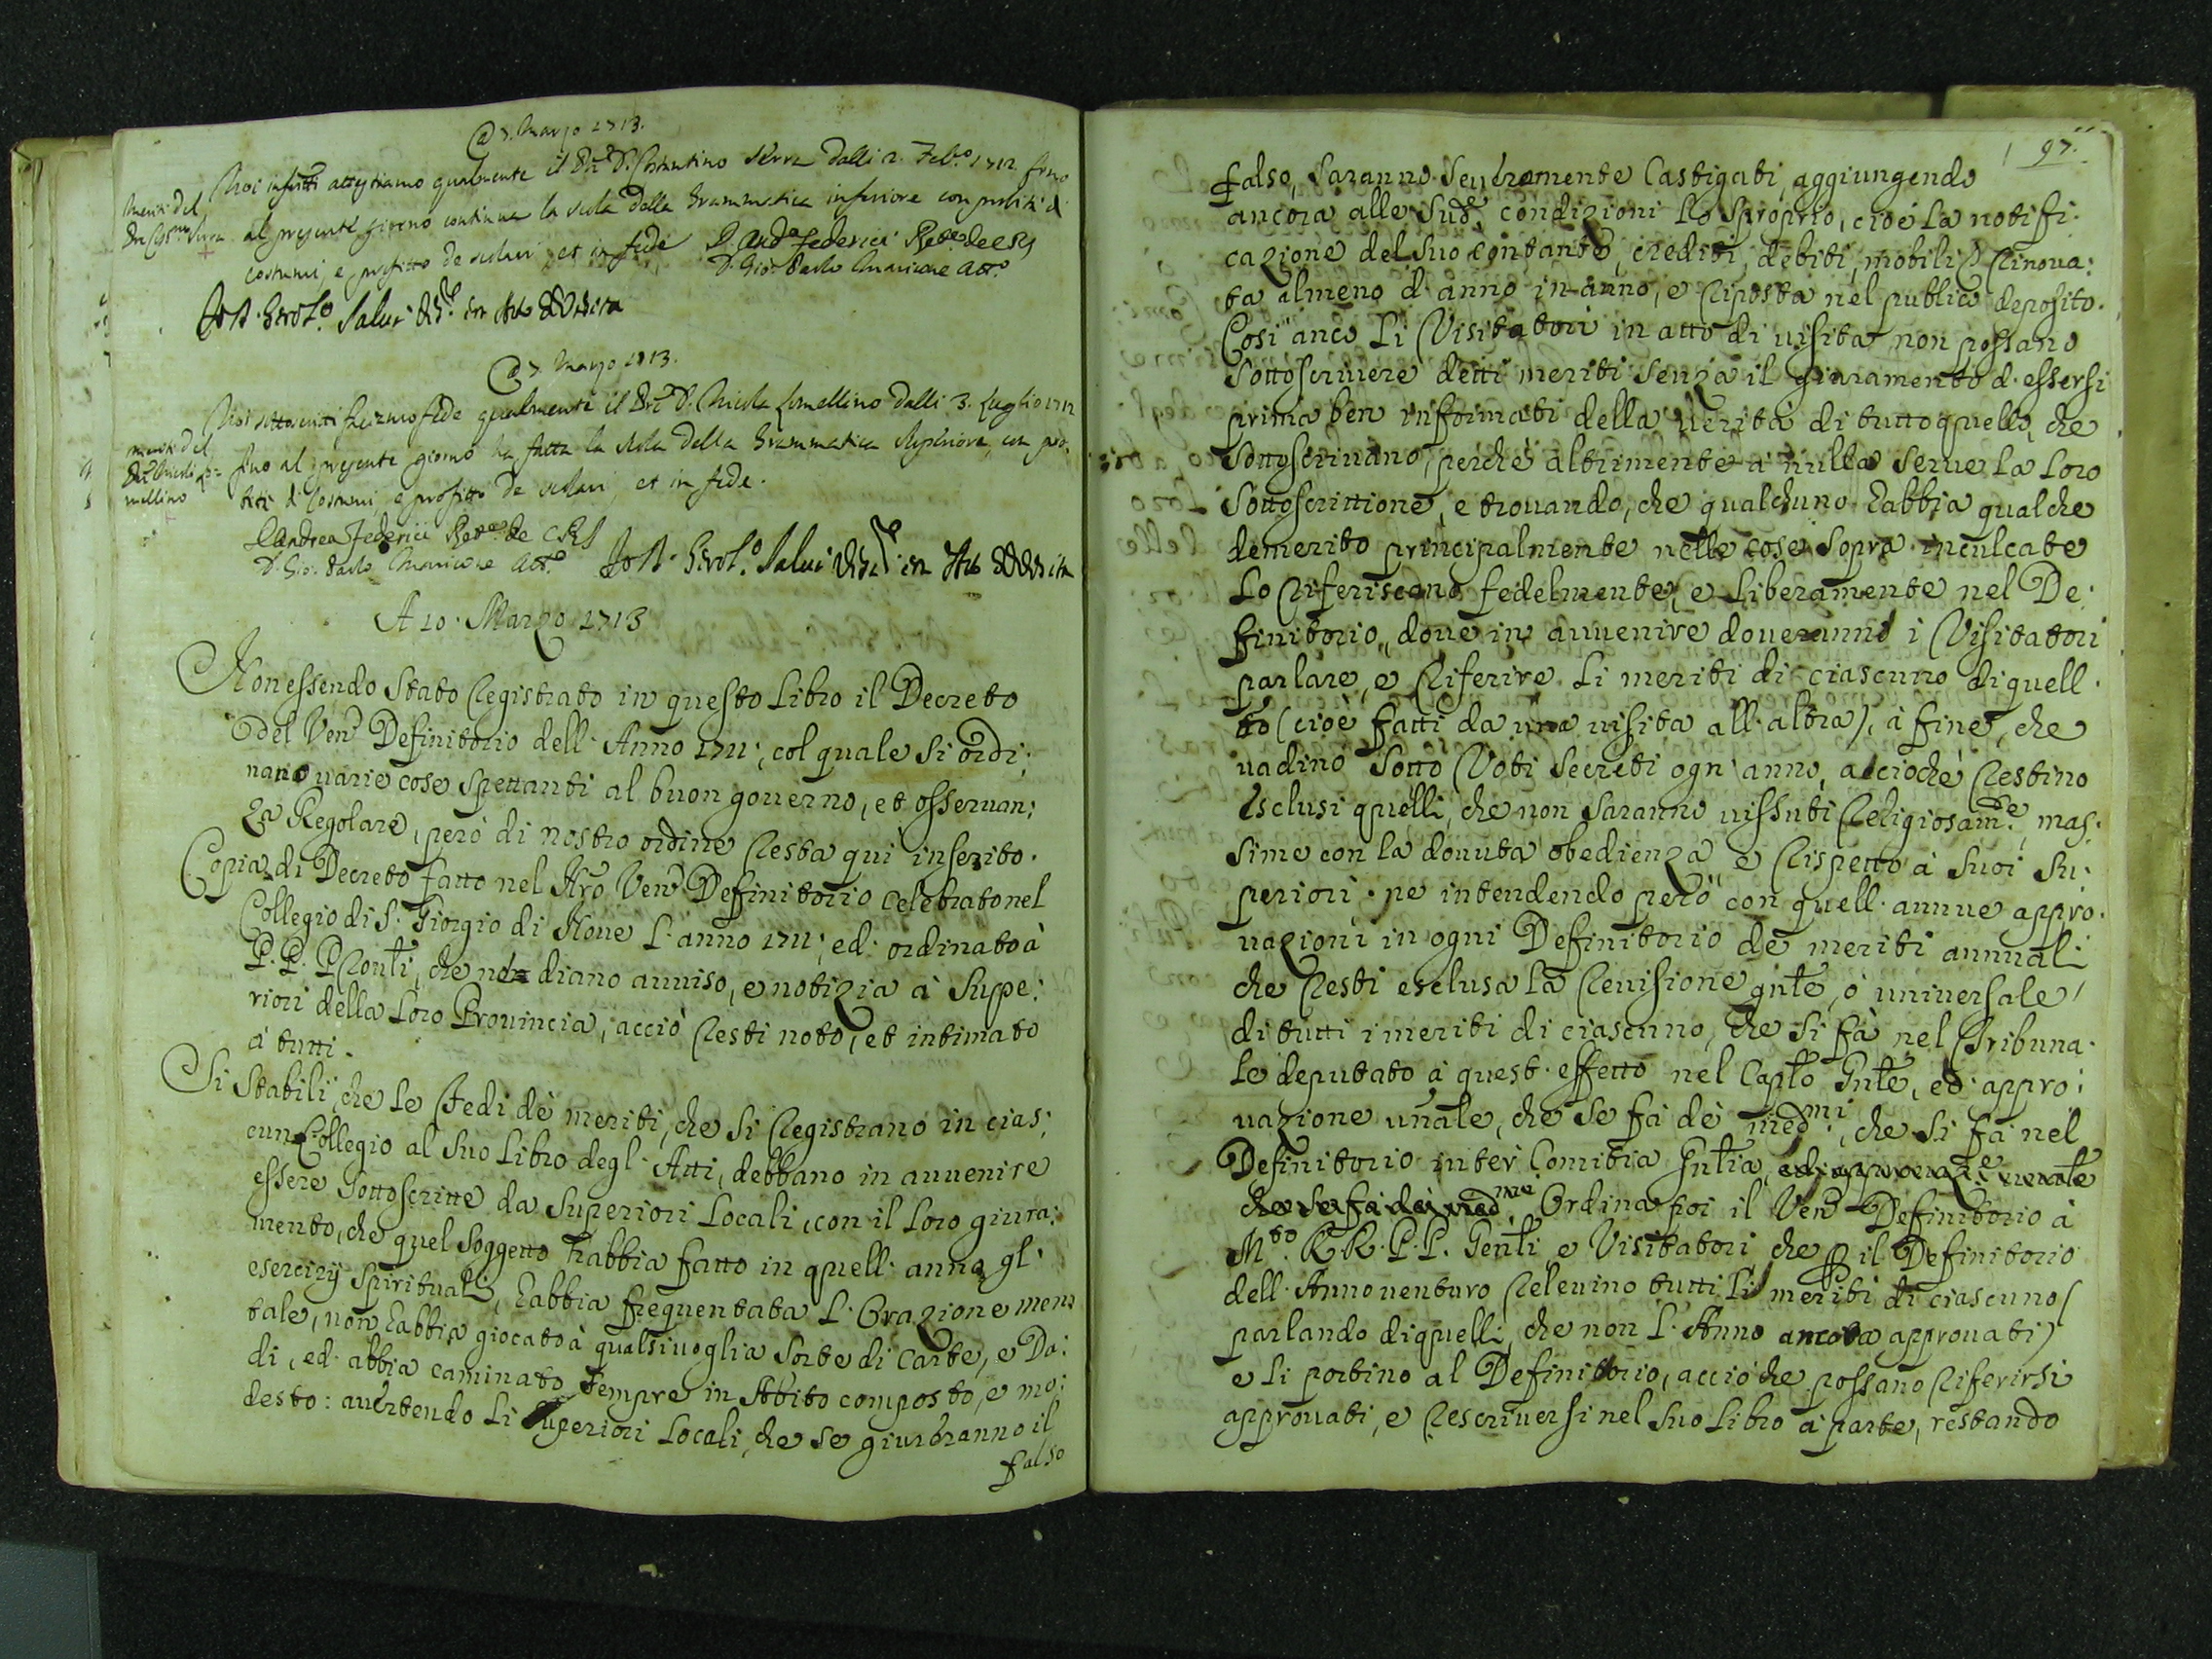 @ 7. Marzo 1713.
Noi infritti attestiamo qualmente il Pre D. Costantino Serra dalli 2. Feb.o 1712 fino
meriti del
al presente giorno continua la scola della Grammatica inferiore con probità di
costumi, e profitto de scolari, et in fede D. And.a Federici
D. Gio: Carlo Att.o
Salvi
@ 7 Marzo 1713.
Noi sottoscritti facciamo fede qualmente il Pre D. Nicola Lomellino dalli 3. Luglio 1712
meriti del
fino al presente giorno ha fatta la scola della Grammatica Superiore, con pro,
mellino
bità di Costumi, e profitto de scolari, et in fede.
D. Andrea Federici de C.R.S
D. Gio: Carlo Att.o Salvi
A 10. Marzo 1713
Non essendo Stato Registrato in questo Libro il Decreto
del Ven.e Definitorio dell' Anno 1711; col quale Si ordi;
nano varie cose spettanti al buon governo, et osservan;
za Regolare, però di nostro ordine Resta quì inserito.
Copia di Decreto fatto nel Nro Ven.e Definitorio celebrato nel
Collegio di S. Giorgio di Nove L'anno 1711; ed ordinato à
P. P. PRonti, che ne diano avviso, e notizia à Suppe;
riori della Loro Provincia, acciò Resti noto, et intimato
à tutti.
Si Stabilì, che Le Fedi dè meriti, che Si Registrano in cias;
cun Collegio al Suo Libro degl' Atti, debbano in avvenire
essere Sottoscritte da Superiori Locali, con il Loro giura;
mento, che quel Soggetto habbia fatto in quell' anno gl'
esercizij Spirituali, habbia frequentata L'Orazione men
tale, non habbia giocato à qualsivoglia Sorte di Carte, e Da;
di, ed abbia caminato Sempre in Abito composto, e mo;
desto: avertendo Li Superiori Locali, che Se giureranno il
falso
97.
falso, Saranno Severamente Castigati, aggiungendo
ancora alle Sud.e condizioni Lo Sproprio, cioè La notifi;
cazione del Suo contante, crediti, debiti, mobili Rinova;
ta almeno d'anno in anno, e Riposta nel publico deposito.
Cosi anco Li Visitatori in atto di visita non possano
Sottoscrivere detti meriti Senza il giuramento d'essersi
prima ben informati della verità di tutto quello, che
Sottoscrivano, perchè altrimente à nulla Serve La Loro
Sottoscrittione, e trovando, che qualchuno habbia qualche
demerito principalmente nelle cose Sopra inculcate
Lo Riferiscano fedelmente, e Liberamente nel De;
finitorio, dove in avvenire doveranno i Visitatori
parlare, e Riferire Li meriti di ciascuno di quell'
to (cioè fatti da una visita all'altra), à fine, che
vadino Sotto Voti Secreti ogn'anno, acciochè Restino
esclusi quelli, che non Saranno vissuti Religiosam.e, mas;
sime con la dovuta obedienza e Rispetto à Suoi Su;
periori. ne intendendo però con quell' annue appro;
vazioni in ogni Definitorio de meriti annuali
che Resti esclusa La Revisione gnle, ò universale
di tutti i meriti di ciascuno, che Si fà nel Tribuna;
Le deputato à quest' effetto nel Caplo Gnle, ed appro;
vazione vnale, che Se fà dè med.mi, che Si fà nel
Definitorio inter Comitia Gnlia,
Ordina poi il Ven.e Definitorio à
M.to R R. P. P. Genti, e Visitatori che p il Definitorio
dell' Anno venturo Relevino tutti Li meriti di ciascuno (
parlando di quelli, che non L'Anno ancora approvati)
e Li portino al Definitorio, acciò che possano Riferirsi
approvati, e Rescriversi nel Suo Libro à parte, restando